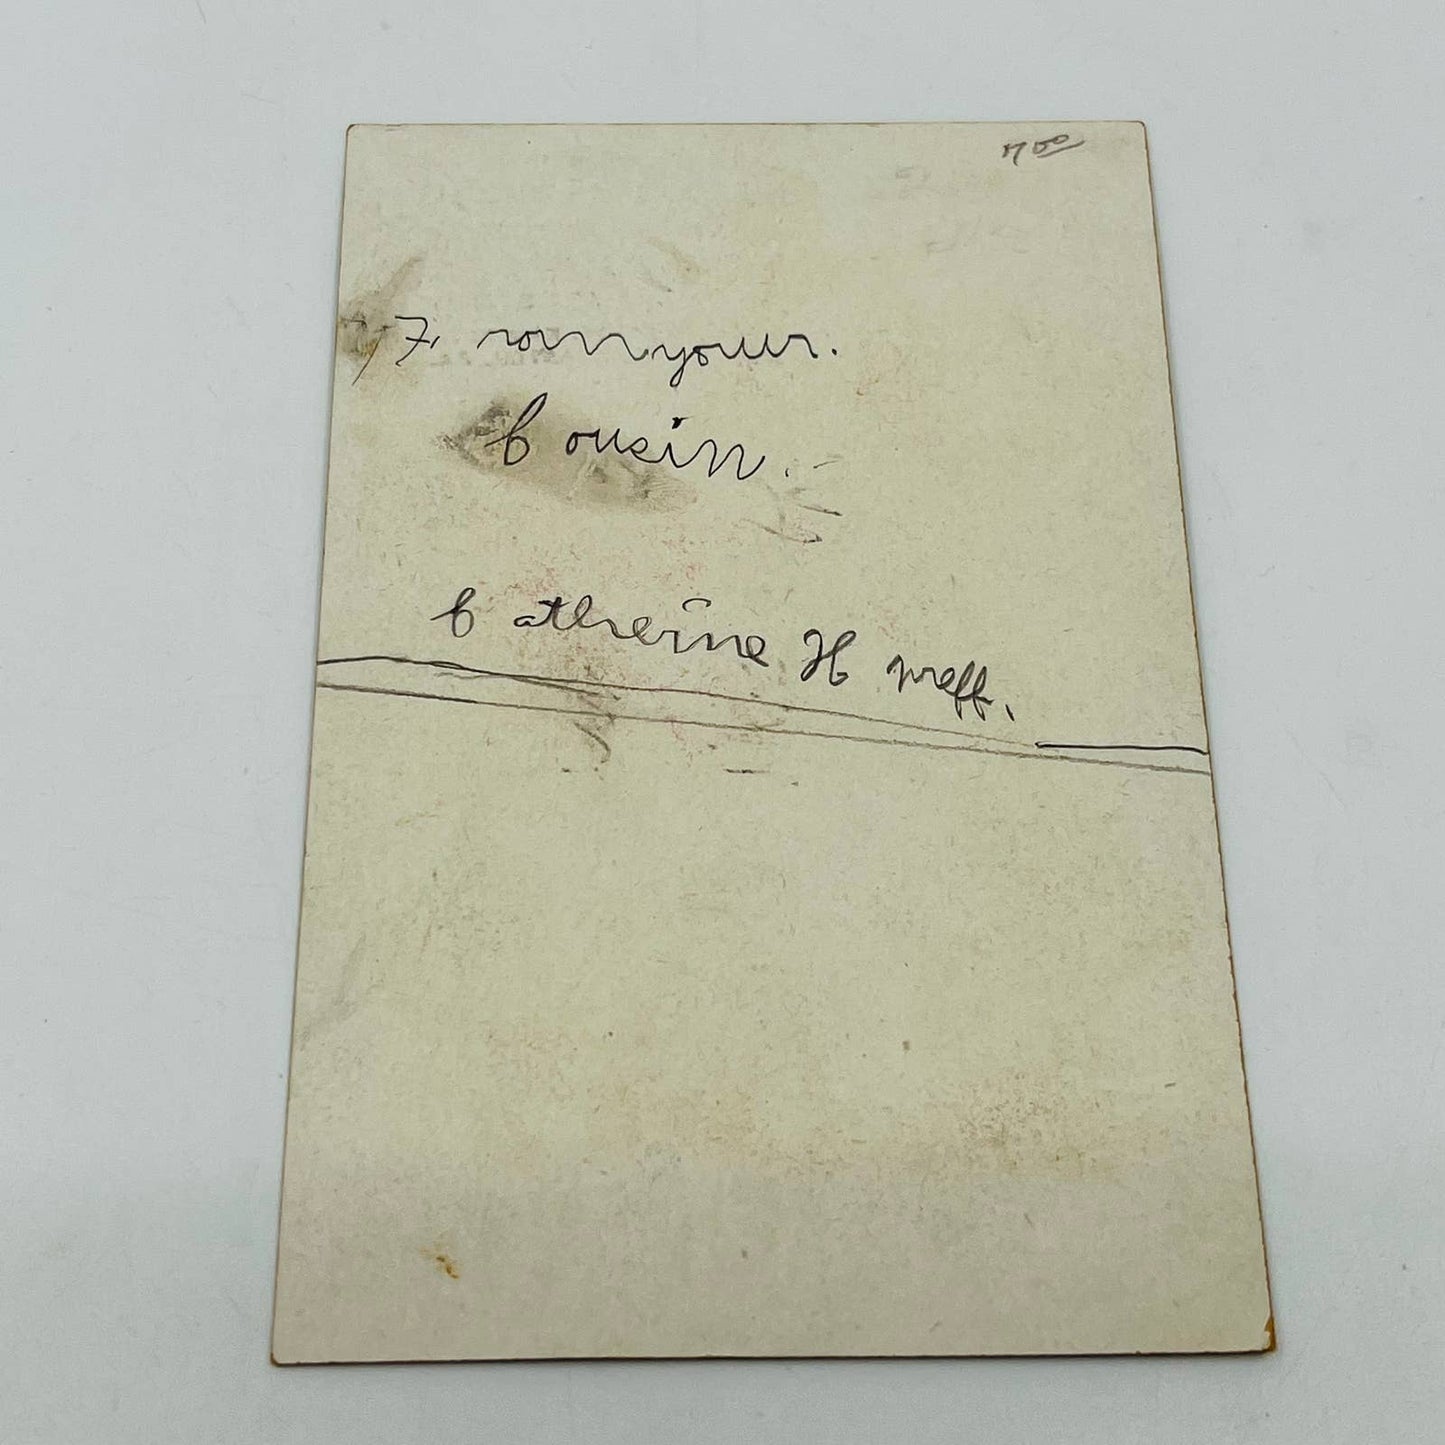 7 00
From your.
Cousin.
Catherine H